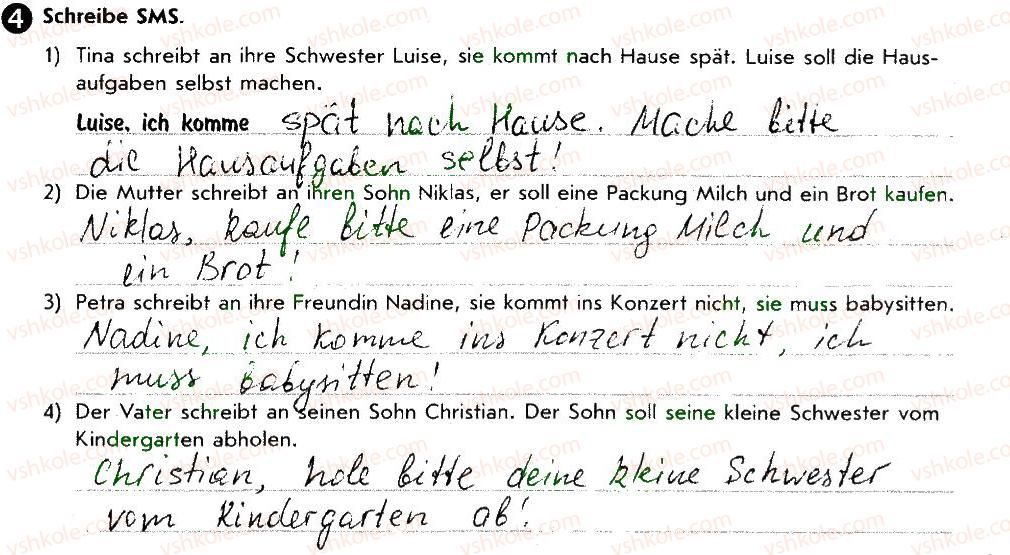 4 Schreibe SMS.
1) Tina schreibt an ihre Schwester Luise, sie kommt nach Hause spät. Luise soll die Haus-
aufgaben selbst machen.
Luise, ich komme spät nach Hause. Mache bitte
die Hausaufgaben selbst!
2) Die Mutter schreibt an ihren Sohn Niklas, er soll eine Packung Milch und ein Brot kaufen.
Niklas, kaufe bitte eine Packung Milch und
ein Brot!
3) Petra schreibt an ihre Freundin Nadine, sie kommt ins Konzert nicht, sie muss babysitten.
Nadine, ich komme ins Konzert nicht, ich
muss babysitten!
4) Der Vater schreibt an seinen Sohn Christian. Der Sohn soll seine kleine Schwester vom
Kindergarten abholen.
Christian, hole bitte deine kleine Schwester
vom Kindergarten ab!